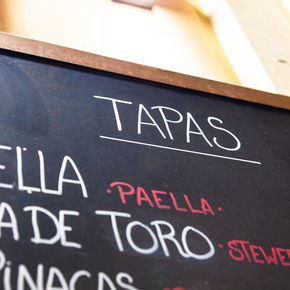 TAPAS
ELLA · PAELLA ·
A DE TORO · STEWE
PINACAS